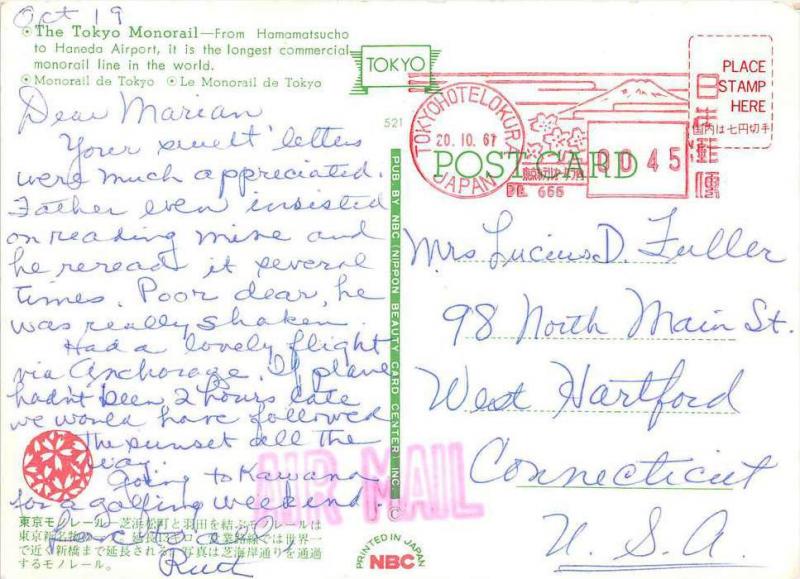 Oct 19
The Tokyo Monorail—From Hamamatsucho
to Haneda Airport, it is the longest commercial
monorail line in the world.
Monorail de Tokyo Le Monorail de Tokyo
Dear Marian
Your swell letters
were much appreciated.
Father even insisted
on reading mine and
he reread it several
times. Poor dear, he
was really shaken.
Had a lovely flight
via Anchorage. If plane
hadn't been 2 hours late
we would have followed
the sunset all the
way.
Going to Kawana
for a golfing weekend.
Love to all,
Ruth
東京モノレール 芝浜松町と羽田を結ぶモノレールは
東京新名物の 延長 キロ 営業路線では世界一
で近く新橋まで延長される。写真は芝海岸通りを通過
するモノレール。
521
PUB. BY NBC (NIPPON BEAUTY CARD CENTER) INC. ©
TOKYO
POST CARD
TOKYO HOTEL OKURA
20.10.67
JAPAN
666
0045
日本郵便
PLACE
STAMP
HERE
国内は七円切手
Mrs Lucius D. Fuller
98 North Main St.
West Hartford
Connecticut
U.S.A.
AIR MAIL
PRINTED IN JAPAN
NBC